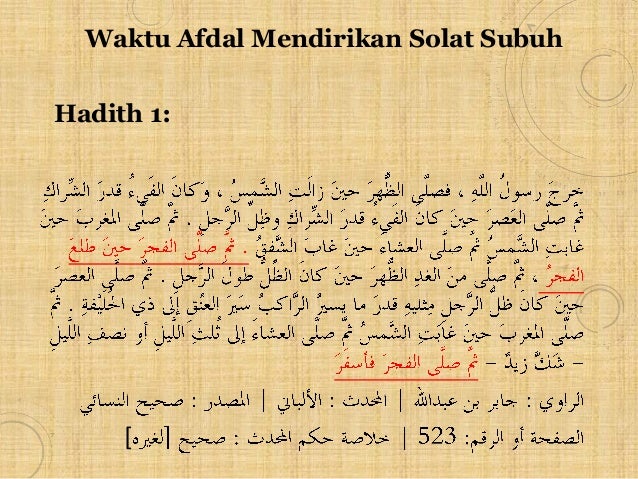 Waktu Afdal Mendirikan Solat Subuh
Hadith 1:
خرجَ رسولُ اللَّهِ ، فصلَّى الظُّهرَ حينَ زالَتِ الشَّمسُ ، وَكانَ الفَيءُ قدرَ الشِّراكِ
ثمَّ صلَّى العَصرَ حينَ كانَ الفَيءُ قدرَ الشِّراكِ وظلِّ الرَّجلِ . ثمَّ صلَّى المغربَ حينَ
غابتِ الشَّمسُ ثمَّ صلَّى العشاءَ حينَ غابَ الشَّفقُ . ثمَّ صلَّى الفجرَ حينَ طلعَ
الفجرُ ، ثمَّ صلَّى منَ الغدِ الظُّهرَ حينَ كانَ الظِّلُّ طولَ الرَّجلِ . ثمَّ صلَّى العصرَ
حينَ كانَ ظلُّ الرَّجلِ مِثليهِ قدرَ ما يسيرُ الرَّاكبُ سَيرَ العنُقِ إلى ذي الحُلَيْفةِ . ثمَّ
صلَّى المغربَ حينَ غابَتِ الشَّمسُ ثمَّ صلَّى العشاءَ إلى ثُلثِ اللَّيلِ أو نصفِ اللَّيلِ
– شَكَّ زيدٌ – ثمَّ صلَّى الفجرَ فأسفَرَ
الراوي : جابر بن عبدالله | المحدث : الألباني | المصدر : صحيح النسائي
الصفحة أو الرقم: 523 | خلاصة حكم المحدث : صحيح [لغيره]